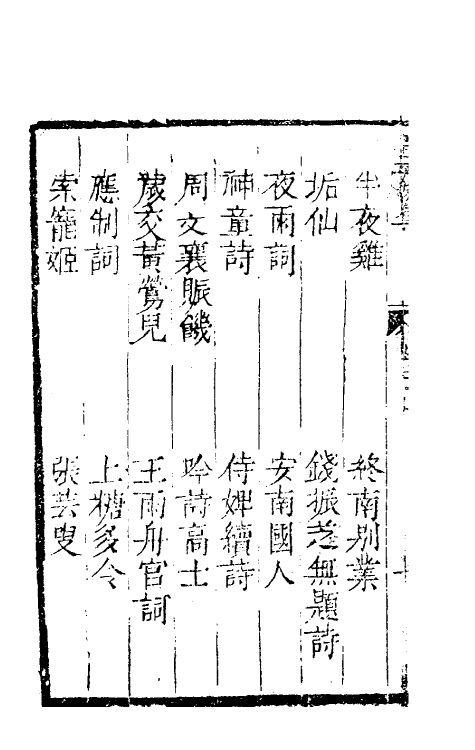 半夜雞　終南別業
垢仙　錢振芝無題詩
夜雨詞　安南國人
神童詩　侍婢續詩
周文襄賑饑　吟詩高士
歲交黃鶯兒　王雨舟官詞
應制詞　上糖多令
索寵姬　張芸叟